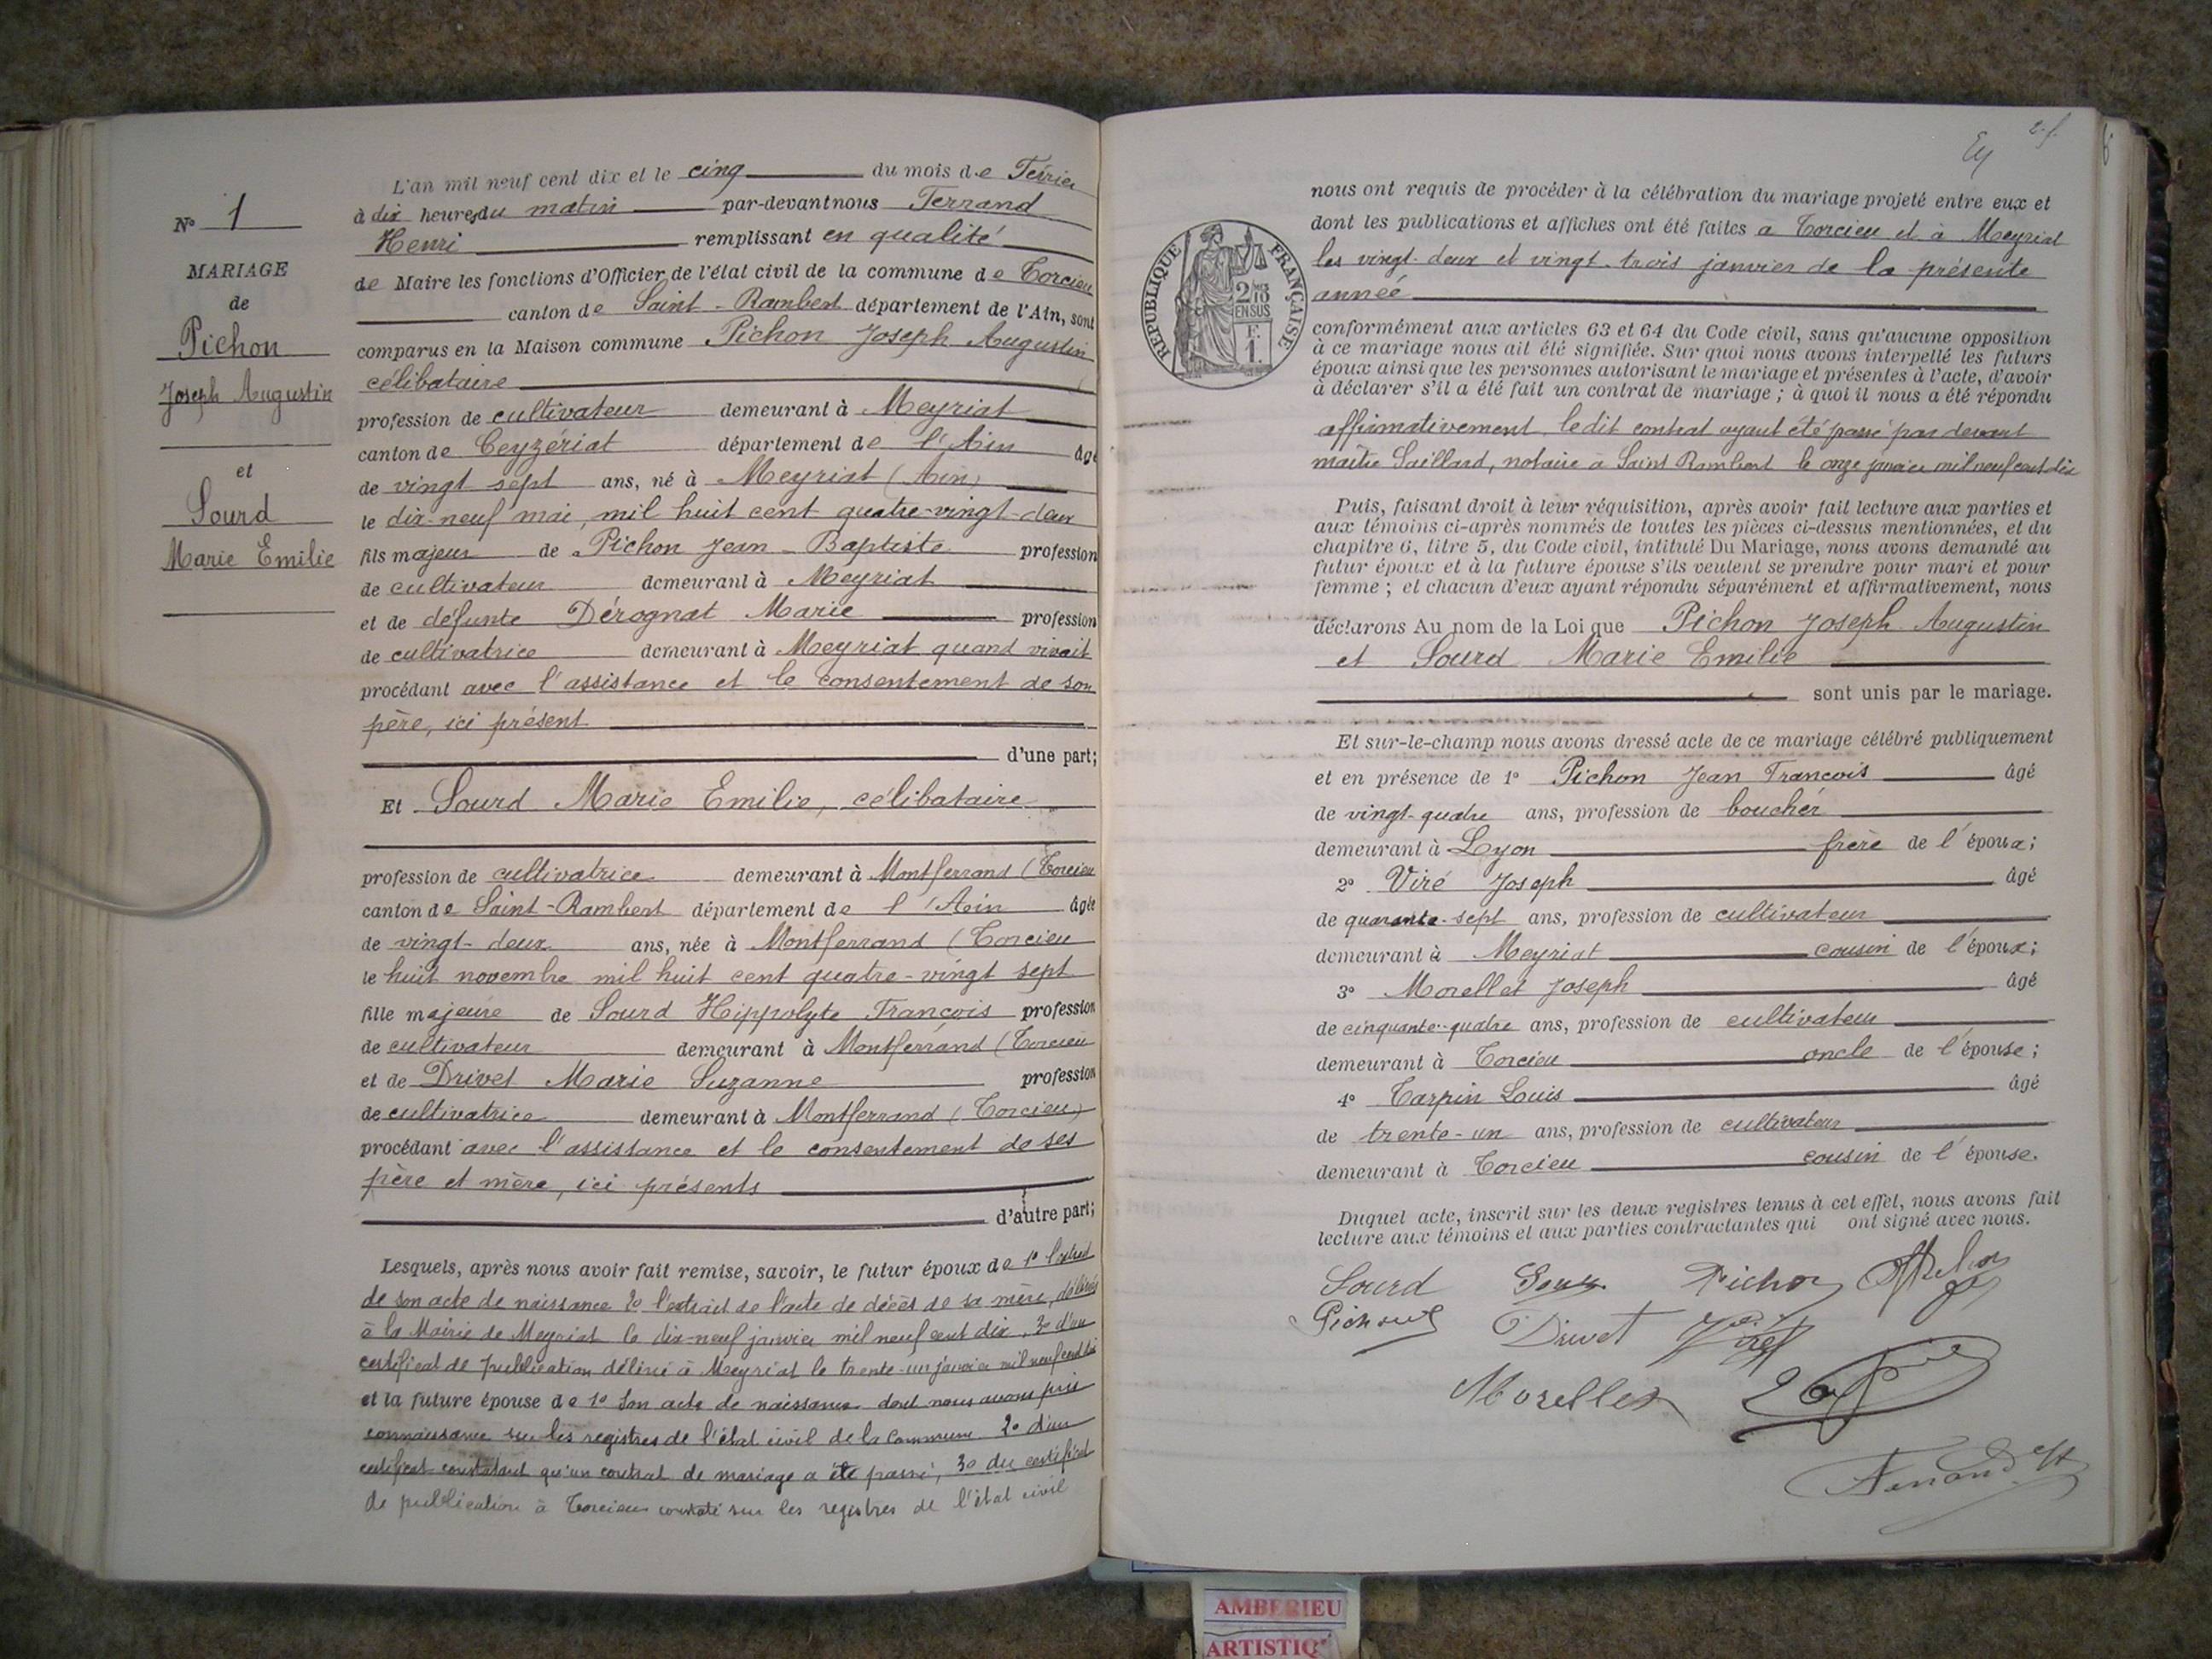 N° 1
MARIAGE
de
Pichon
Joseph Augustin
et
Sourd
Marie Emilie
L'an mil neuf cent dix et le cinq du mois de Février
à dix heures du matin par-devant nous Ferrand
Henri remplissant en qualité
de Maire les fonctions d'Officier de l'état civil de la commune de Torcieu
canton de Saint-Rambert département de l'Ain, sont
comparus en la Maison commune Pichon Joseph Augustin
célibataire
profession de cultivateur demeurant à Meyriat
canton de Ceyzériat département de l'Ain âgé
de vingt sept ans, né à Meyriat (Ain)
le dix-neuf mai, mil huit cent quatre-vingt-deux
fils majeur de Pichon Jean-Baptiste profession
de cultivateur demeurant à Meyriat
et de défunte Dérognat Marie profession
de cultivatrice demeurant à Meyriat quand vivait
procédant avec l'assistance et le consentement de son
père, ici présent
d'une part;
Et Sourd Marie Emilie, célibataire
profession de cultivatrice demeurant à Montferrand (Torcieu
canton de Saint-Rambert département de l'Ain âgée
de vingt-deux ans, née à Montferrand (Torcieu
le huit novembre mil huit cent quatre-vingt sept
fille majeure de Sourd Hippolyte François profession
de cultivateur demeurant à Montferrand (Torcieu
et de Drivet Marie Suzanne profession
de cultivatrice demeurant à Montferrand (Torcieu)
procédant avec l'assistance et le consentement de ses
père et mère, ici présents
d'autre part;
Lesquels, après nous avoir fait remise, savoir, le futur époux de 1° l'extrait
de son acte de naissance 2° l'extrait de l'acte de décès de sa mère, délivrés
à la Mairie de Meyriat le dix-neuf janvier mil neuf cent dix, 3° d'un
certificat de publication délivré à Meyriat le trente-un janvier mil neuf cent dix
et la future épouse de 1° son acte de naissance dont nous avons pris
connaissance sur les registres de l'état civil de la commune 2° d'un
certificat constatant qu'un contrat de mariage a été passé, 3° du certificat
de publication à Torcieu constaté sur les registres de l'état civil
nous ont requis de procéder à la célébration du mariage projeté entre eux et
dont les publications et affiches ont été faites a Torcieu et à Meyriat
les vingt-deux et vingt-trois janvier de la présente
année
RÉPUBLIQUE FRANÇAISE
2/10
EN SUS
F.
1.
conformément aux articles 63 et 64 du Code civil, sans qu'aucune opposition
à ce mariage nous ait été signifiée. Sur quoi nous avons interpellé les futurs
époux ainsi que les personnes autorisant le mariage et présentes à l'acte, d'avoir
à déclarer s'il a été fait un contrat de mariage ; à quoi il nous a été répondu
affirmativement, ledit contrat ayant été passé par devant
maître Saillard, notaire à Saint Rambert le onze janvier mil neuf cent dix
Puis, faisant droit à leur réquisition, après avoir fait lecture aux parties et
aux témoins ci-après nommés de toutes les pièces ci-dessus mentionnées, et du
chapitre 6, titre 5, du Code civil, intitulé Du Mariage, nous avons demandé au
futur époux et à la future épouse s'ils veulent se prendre pour mari et pour
femme ; et chacun d'eux ayant répondu séparément et affirmativement, nous
déclarons Au nom de la Loi que Pichon Joseph Augustin
et Sourd Marie Emilie
sont unis par le mariage.
Et sur-le-champ nous avons dressé acte de ce mariage célébré publiquement
et en présence de 1° Pichon Jean François âgé
de vingt-quatre ans, profession de boucher
demeurant à Lyon frère de l'époux;
2° Viré Joseph âgé
de quarante-sept ans, profession de cultivateur
demeurant à Meyriat cousin de l'époux;
3° Morellet Joseph âgé
de cinquante-quatre ans, profession de cultivateur
demeurant à Torcieu oncle de l'épouse;
4° Tarpin Louis âgé
de trente-un ans, profession de cultivateur
demeurant à Torcieu cousin de l'épouse.
Duquel acte, inscrit sur les deux registres tenus à cet effet, nous avons fait
lecture aux témoins et aux parties contractantes qui ont signé avec nous.
Sourd Pichon
Pichon Drivet Viret
Morellet
Ferrand H
AMBERIEU
ARTISTIQ